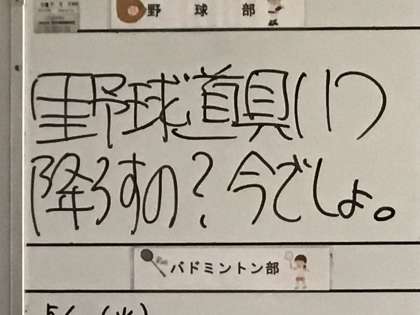 野球部
野球道具いつ
降ろすの?今でしょ。
バドミントン部